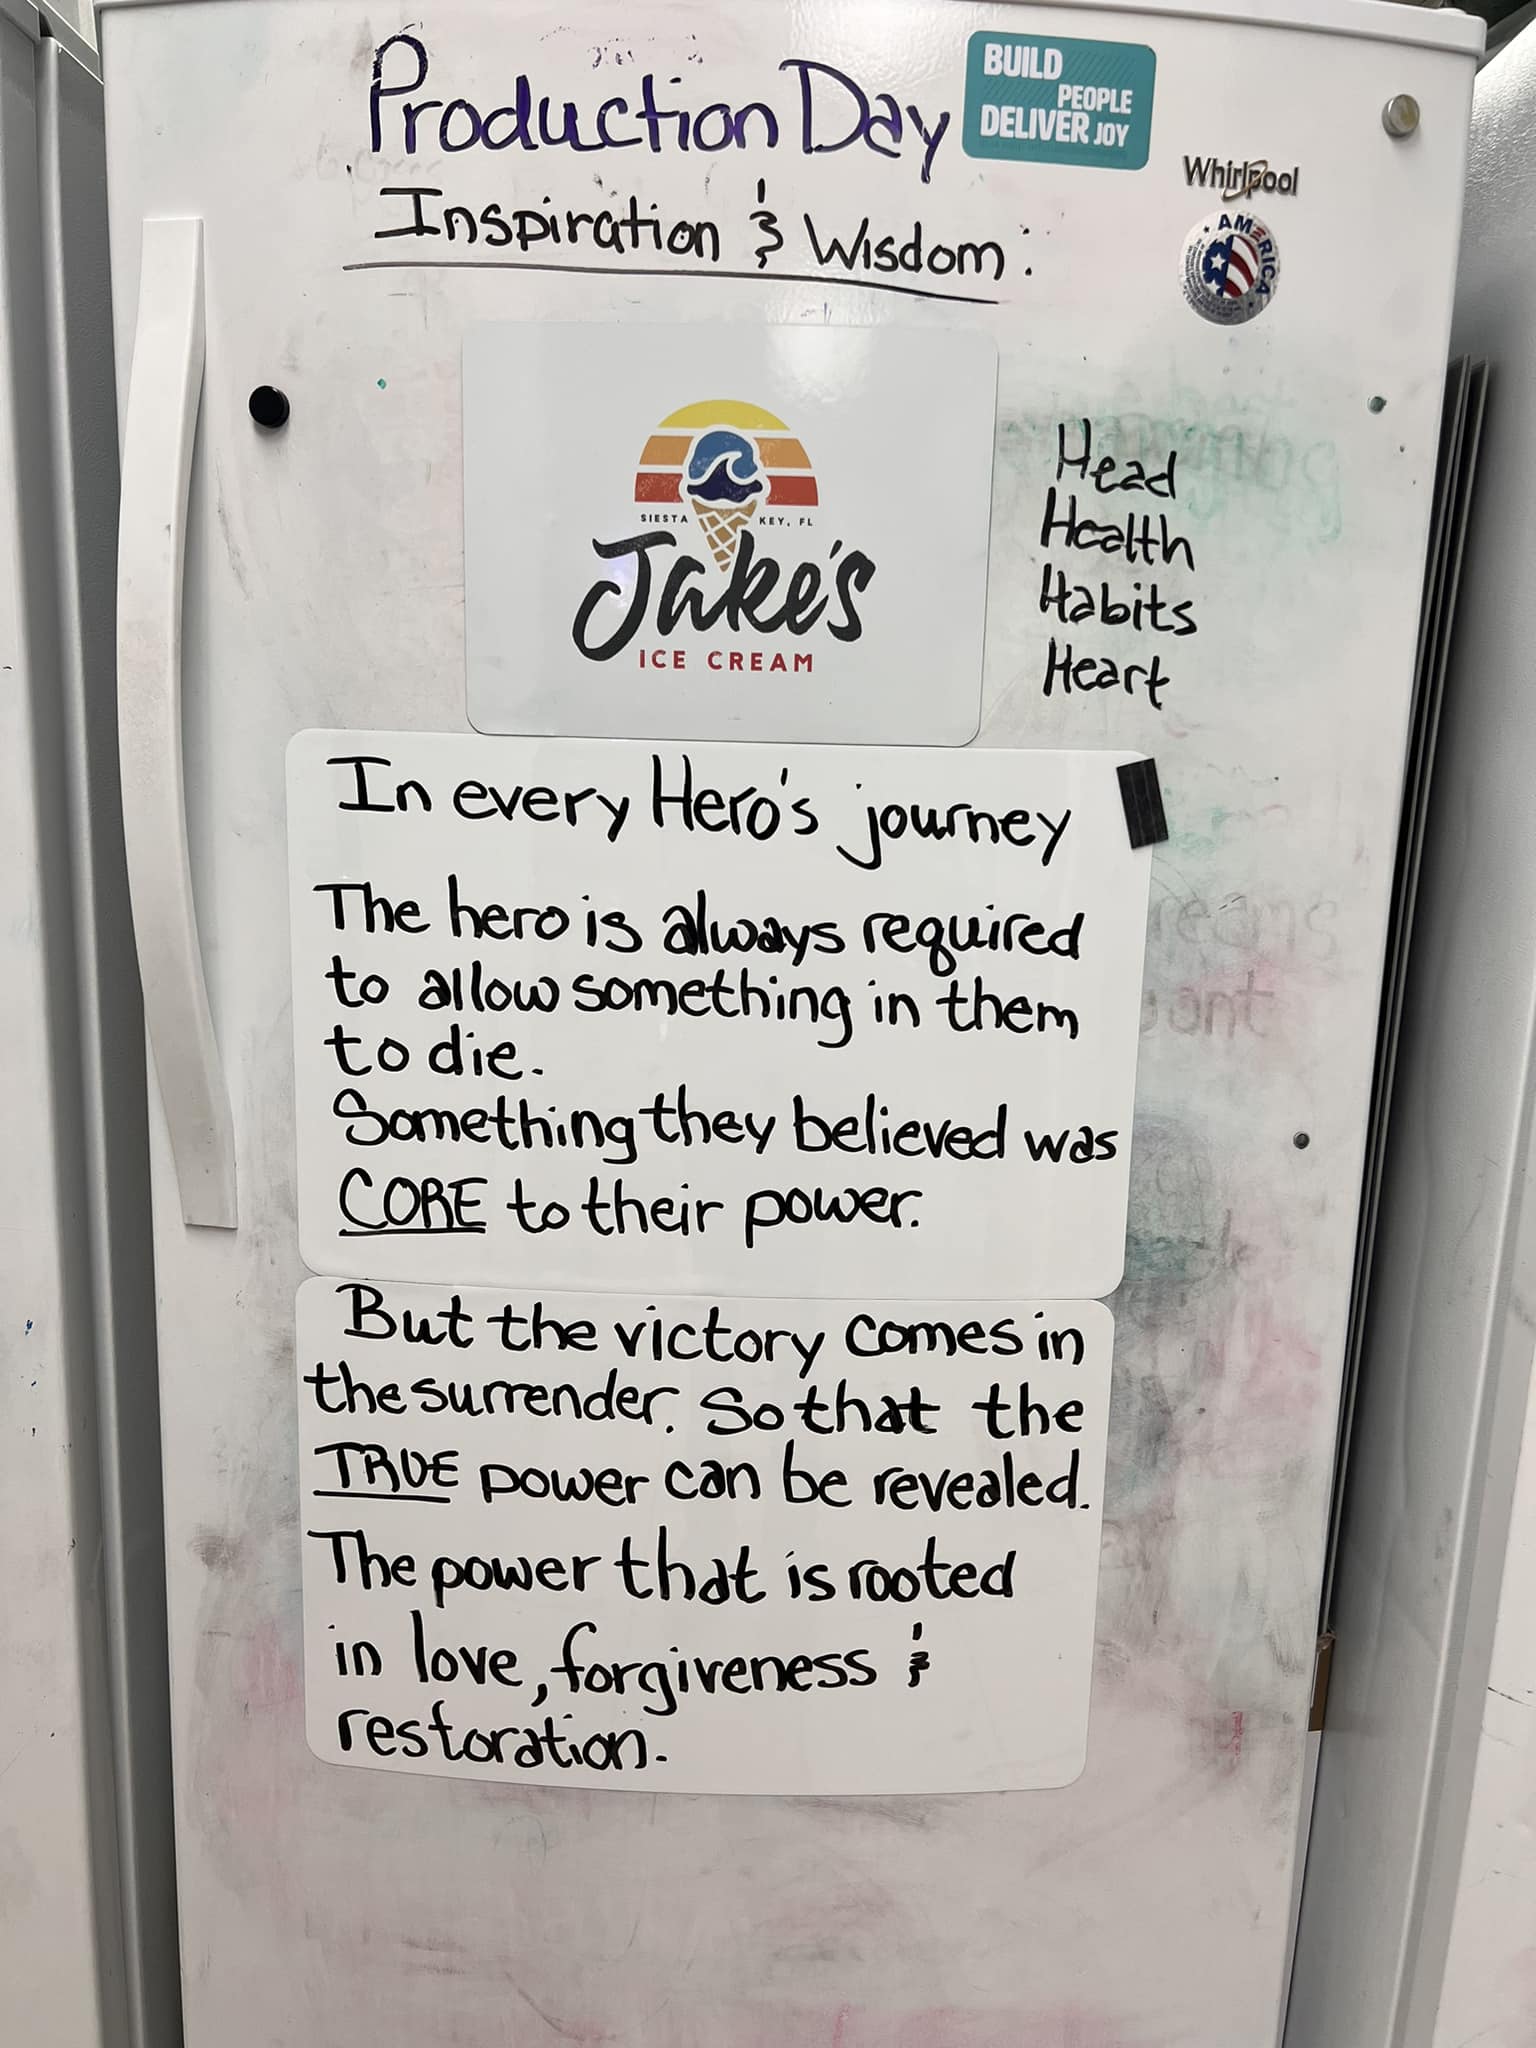 Production Day
BUILD
PEOPLE
DELIVER JOY
Whirlpool
Inspiration & Wisdom:
AMERICA
SIESTA KEY, FL
Jake's
ICE CREAM
Head
Health
Habits
Heart
In every Hero's journey
The hero is always required
to allow something in them
to die.
Something they believed was
CORE to their power.
But the victory comes in
the surrender. So that the
TRUE power can be revealed.
The power that is rooted
in love, forgiveness &
restoration.